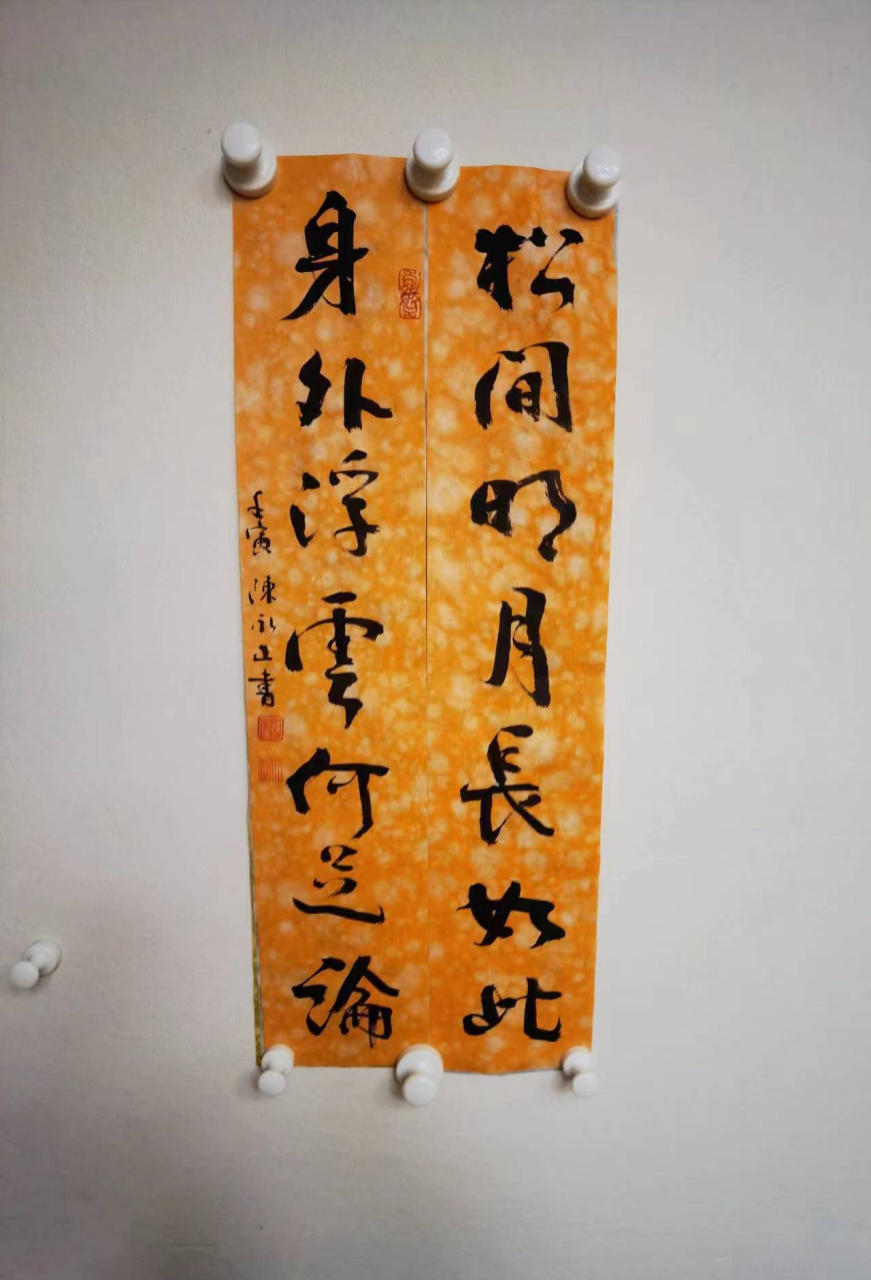 松間明月長如此
身外浮雲何足論
壬寅 陳永正書